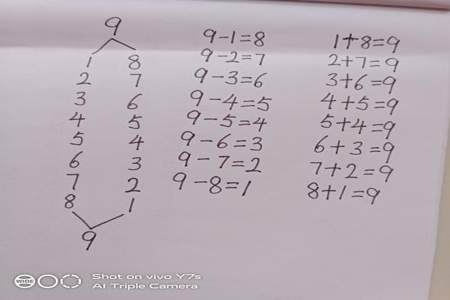 9
1 8
2 7
3 6
4 5
5 4
6 3
7 2
8 1
9
9-1=8
9-2=7
9-3=6
9-4=5
9-5=4
9-6=3
9-7=2
9-8=1
1+8=9
2+7=9
3+6=9
4+5=9
5+4=9
6+3=9
7+2=9
8+1=9
WIDE
Shot on vivo Y7s
AI Triple Camera